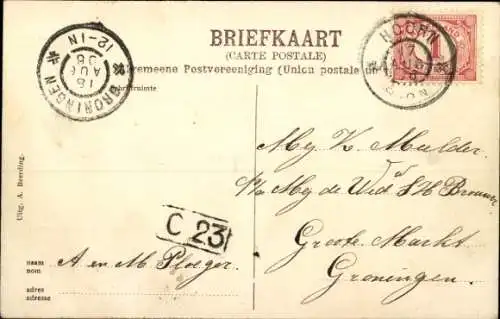 BRIEFKAART
(CARTE POSTALE)
Algemeene Postvereeniging (Union postale
GRONINGEN
12-IN
18
AUG
08
HOORN
17
AUG
1
Uitg. A. Beerding.
Mej K Mulder
p/a Mej de Wed S H Brouwer
Groote Markt
Groningen
C 23
naam
nom
A en M Ploeger
adres
adresse